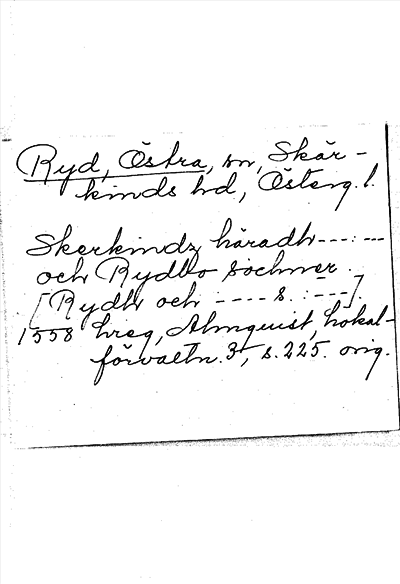 Ryd, Östra, sn, Skär-
kinds hd, Österg. l.
Skerkindz häradh---:---
och Rydbo sochner.
[Rydh och ---- s. :---].
1558 hreg, Almquist, Lokal-
förvaltn. 3, s. 225. orig.